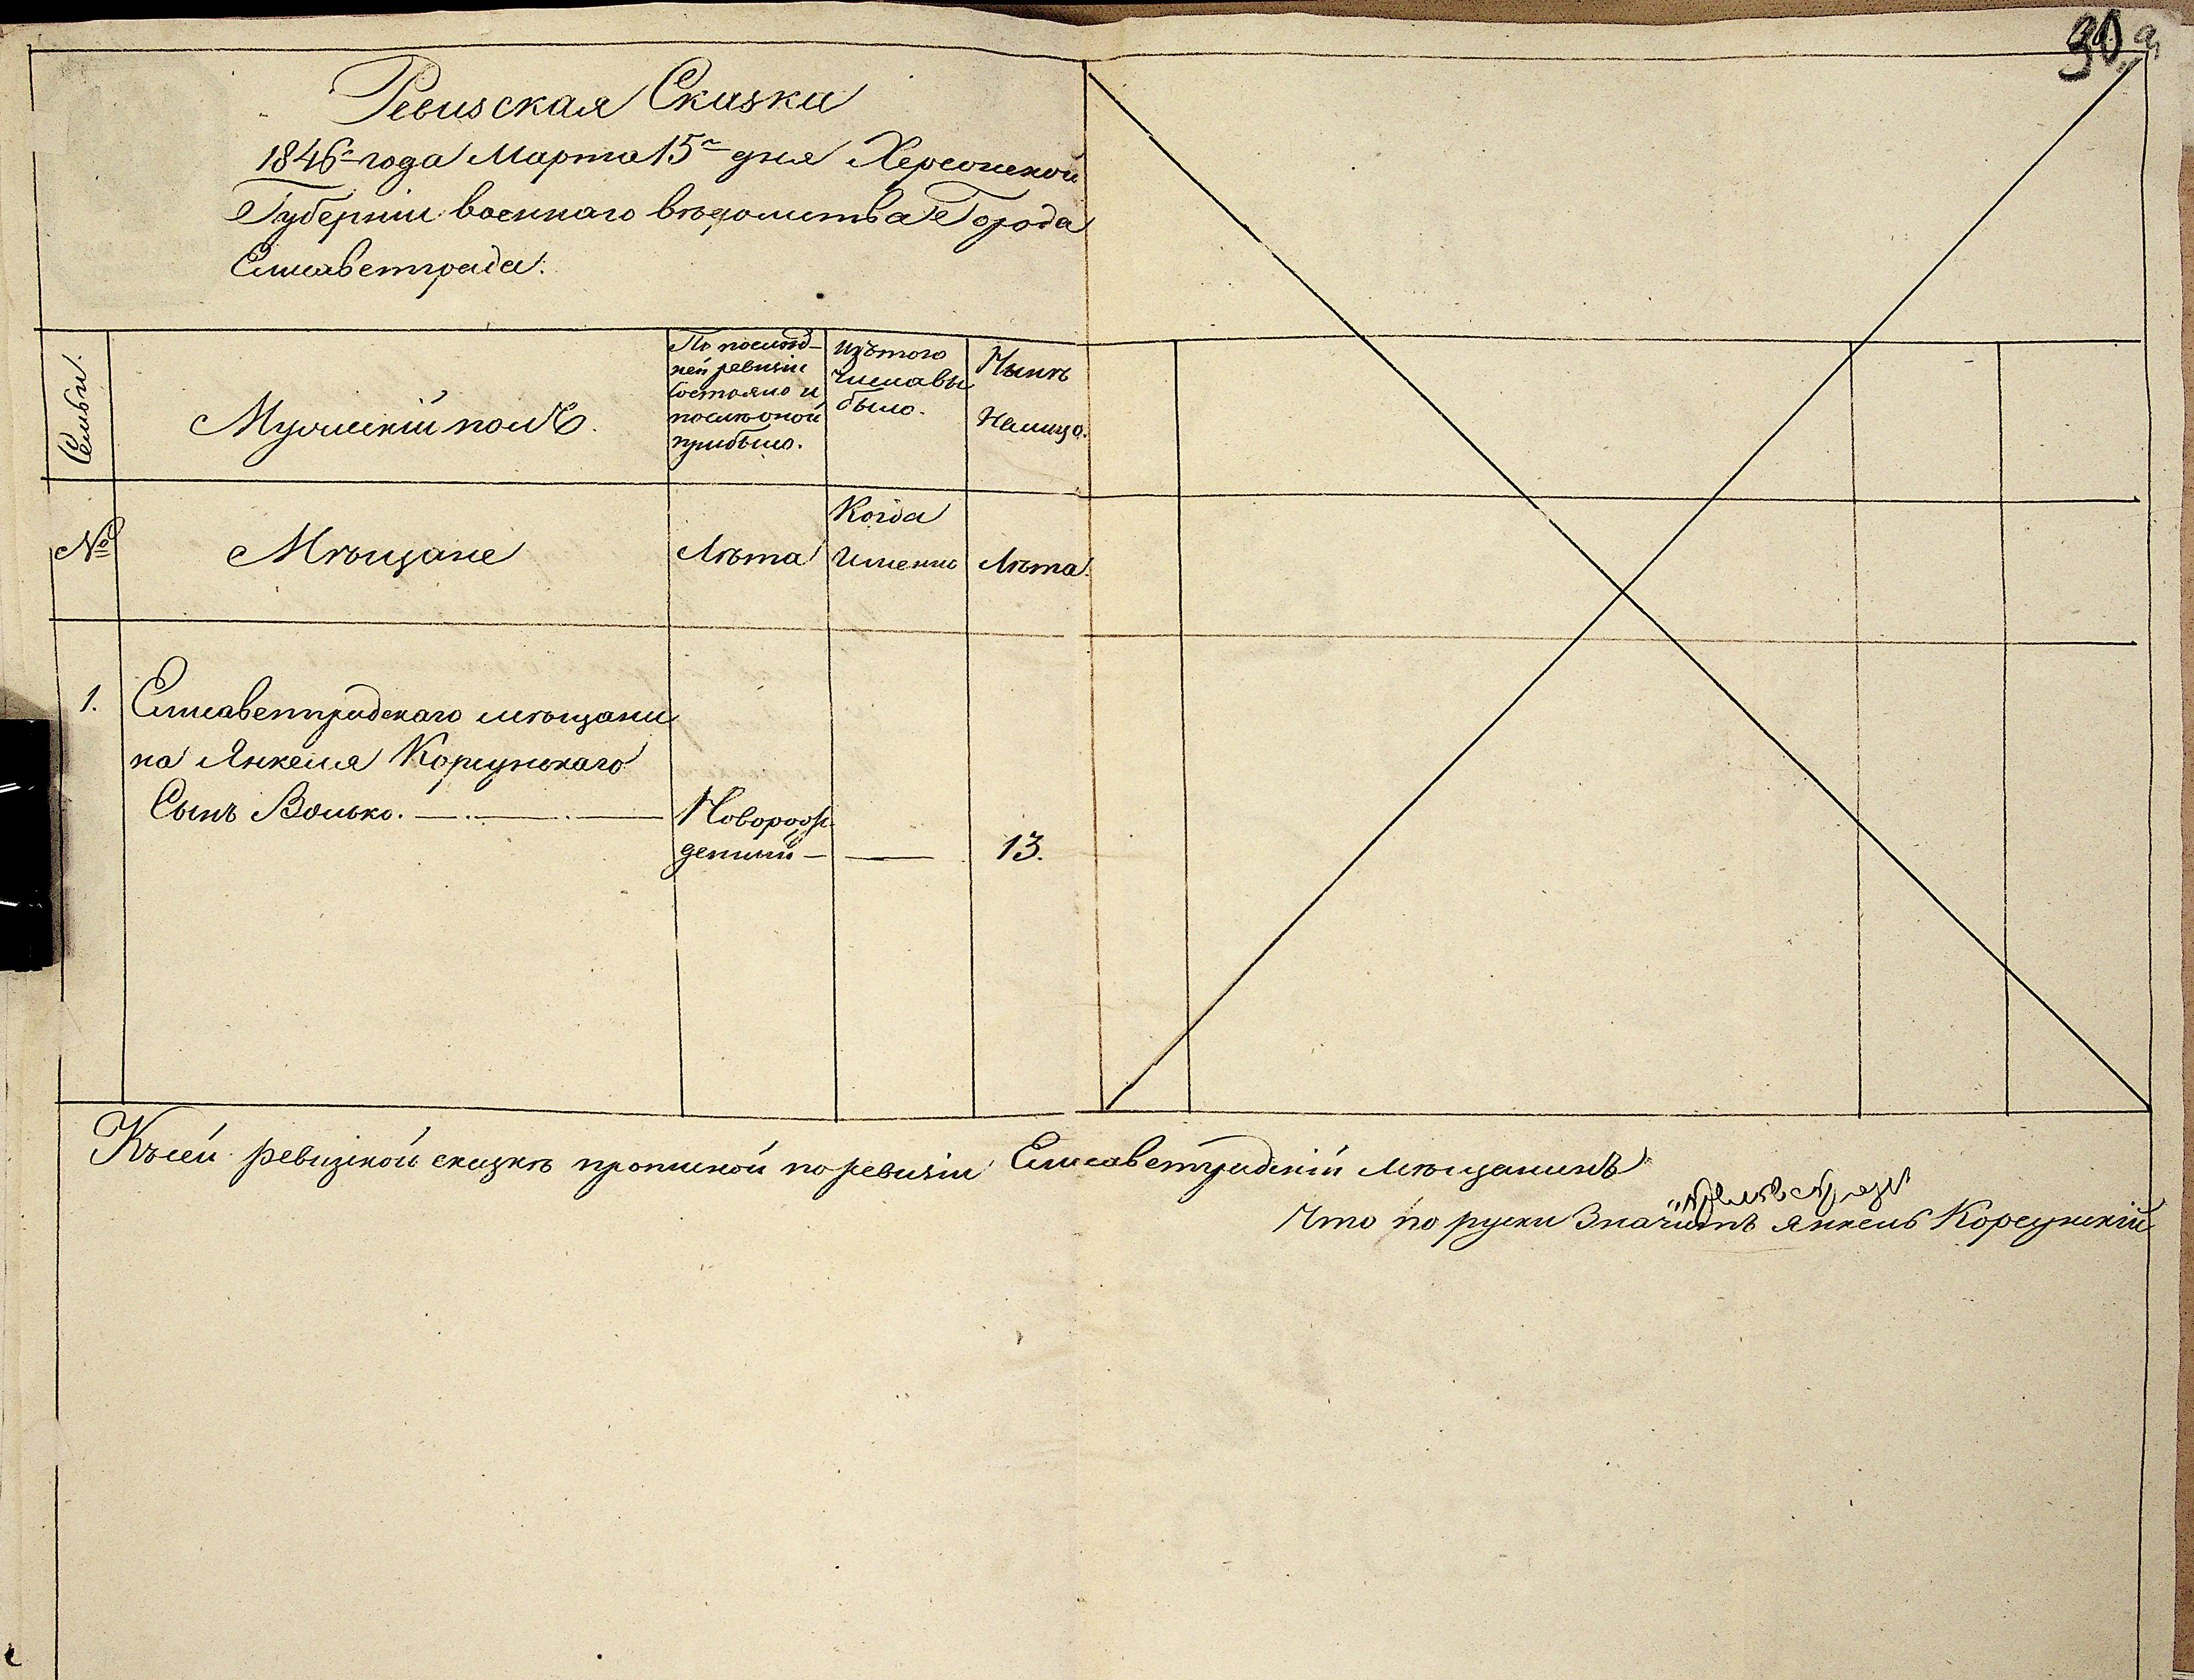 30
Ревизская Сказка
1846 года Марта 15 дня Херсонской
Губерніи военнаго вѣдомства Города
Елисаветграда.
Семьи.
Мужескій полъ.
По послѣд-
ней ревизіи
состояло и
послѣ оной
прибыло.
Изъ того
числа вы
было.
Нынѣ
На лицо.
№
Мѣщане
Лѣта
Когда
Именно
Лѣта.
1. Елисаветградскаго мѣщани
на Янкеля Корсунскаго
Сынъ Волько.
Новорож
денный
13.
Къ сей ревизской сказкѣ прописной по ревизіи Елисаветградскій мѣщанинъ
Что по руски Значитъ Янкель Корсунскій